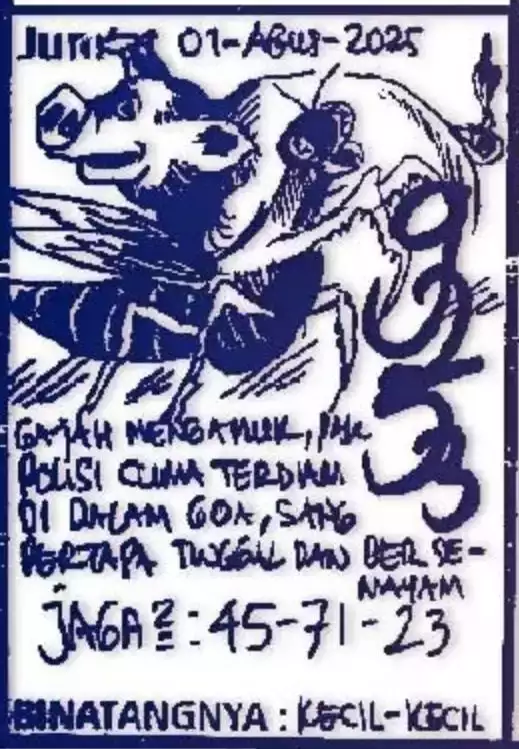 Jumat 01-AGUS-2025
GAJAH MENGAMUK, PAK
POLISI CUMA TERDIAM
DI DALAM GOA, SANG
PERTAPA TINGGAL DAN BERSE-
MAYAM
JAGA²: 45-71-23
BINATANGNYA : KECIL-KECIL